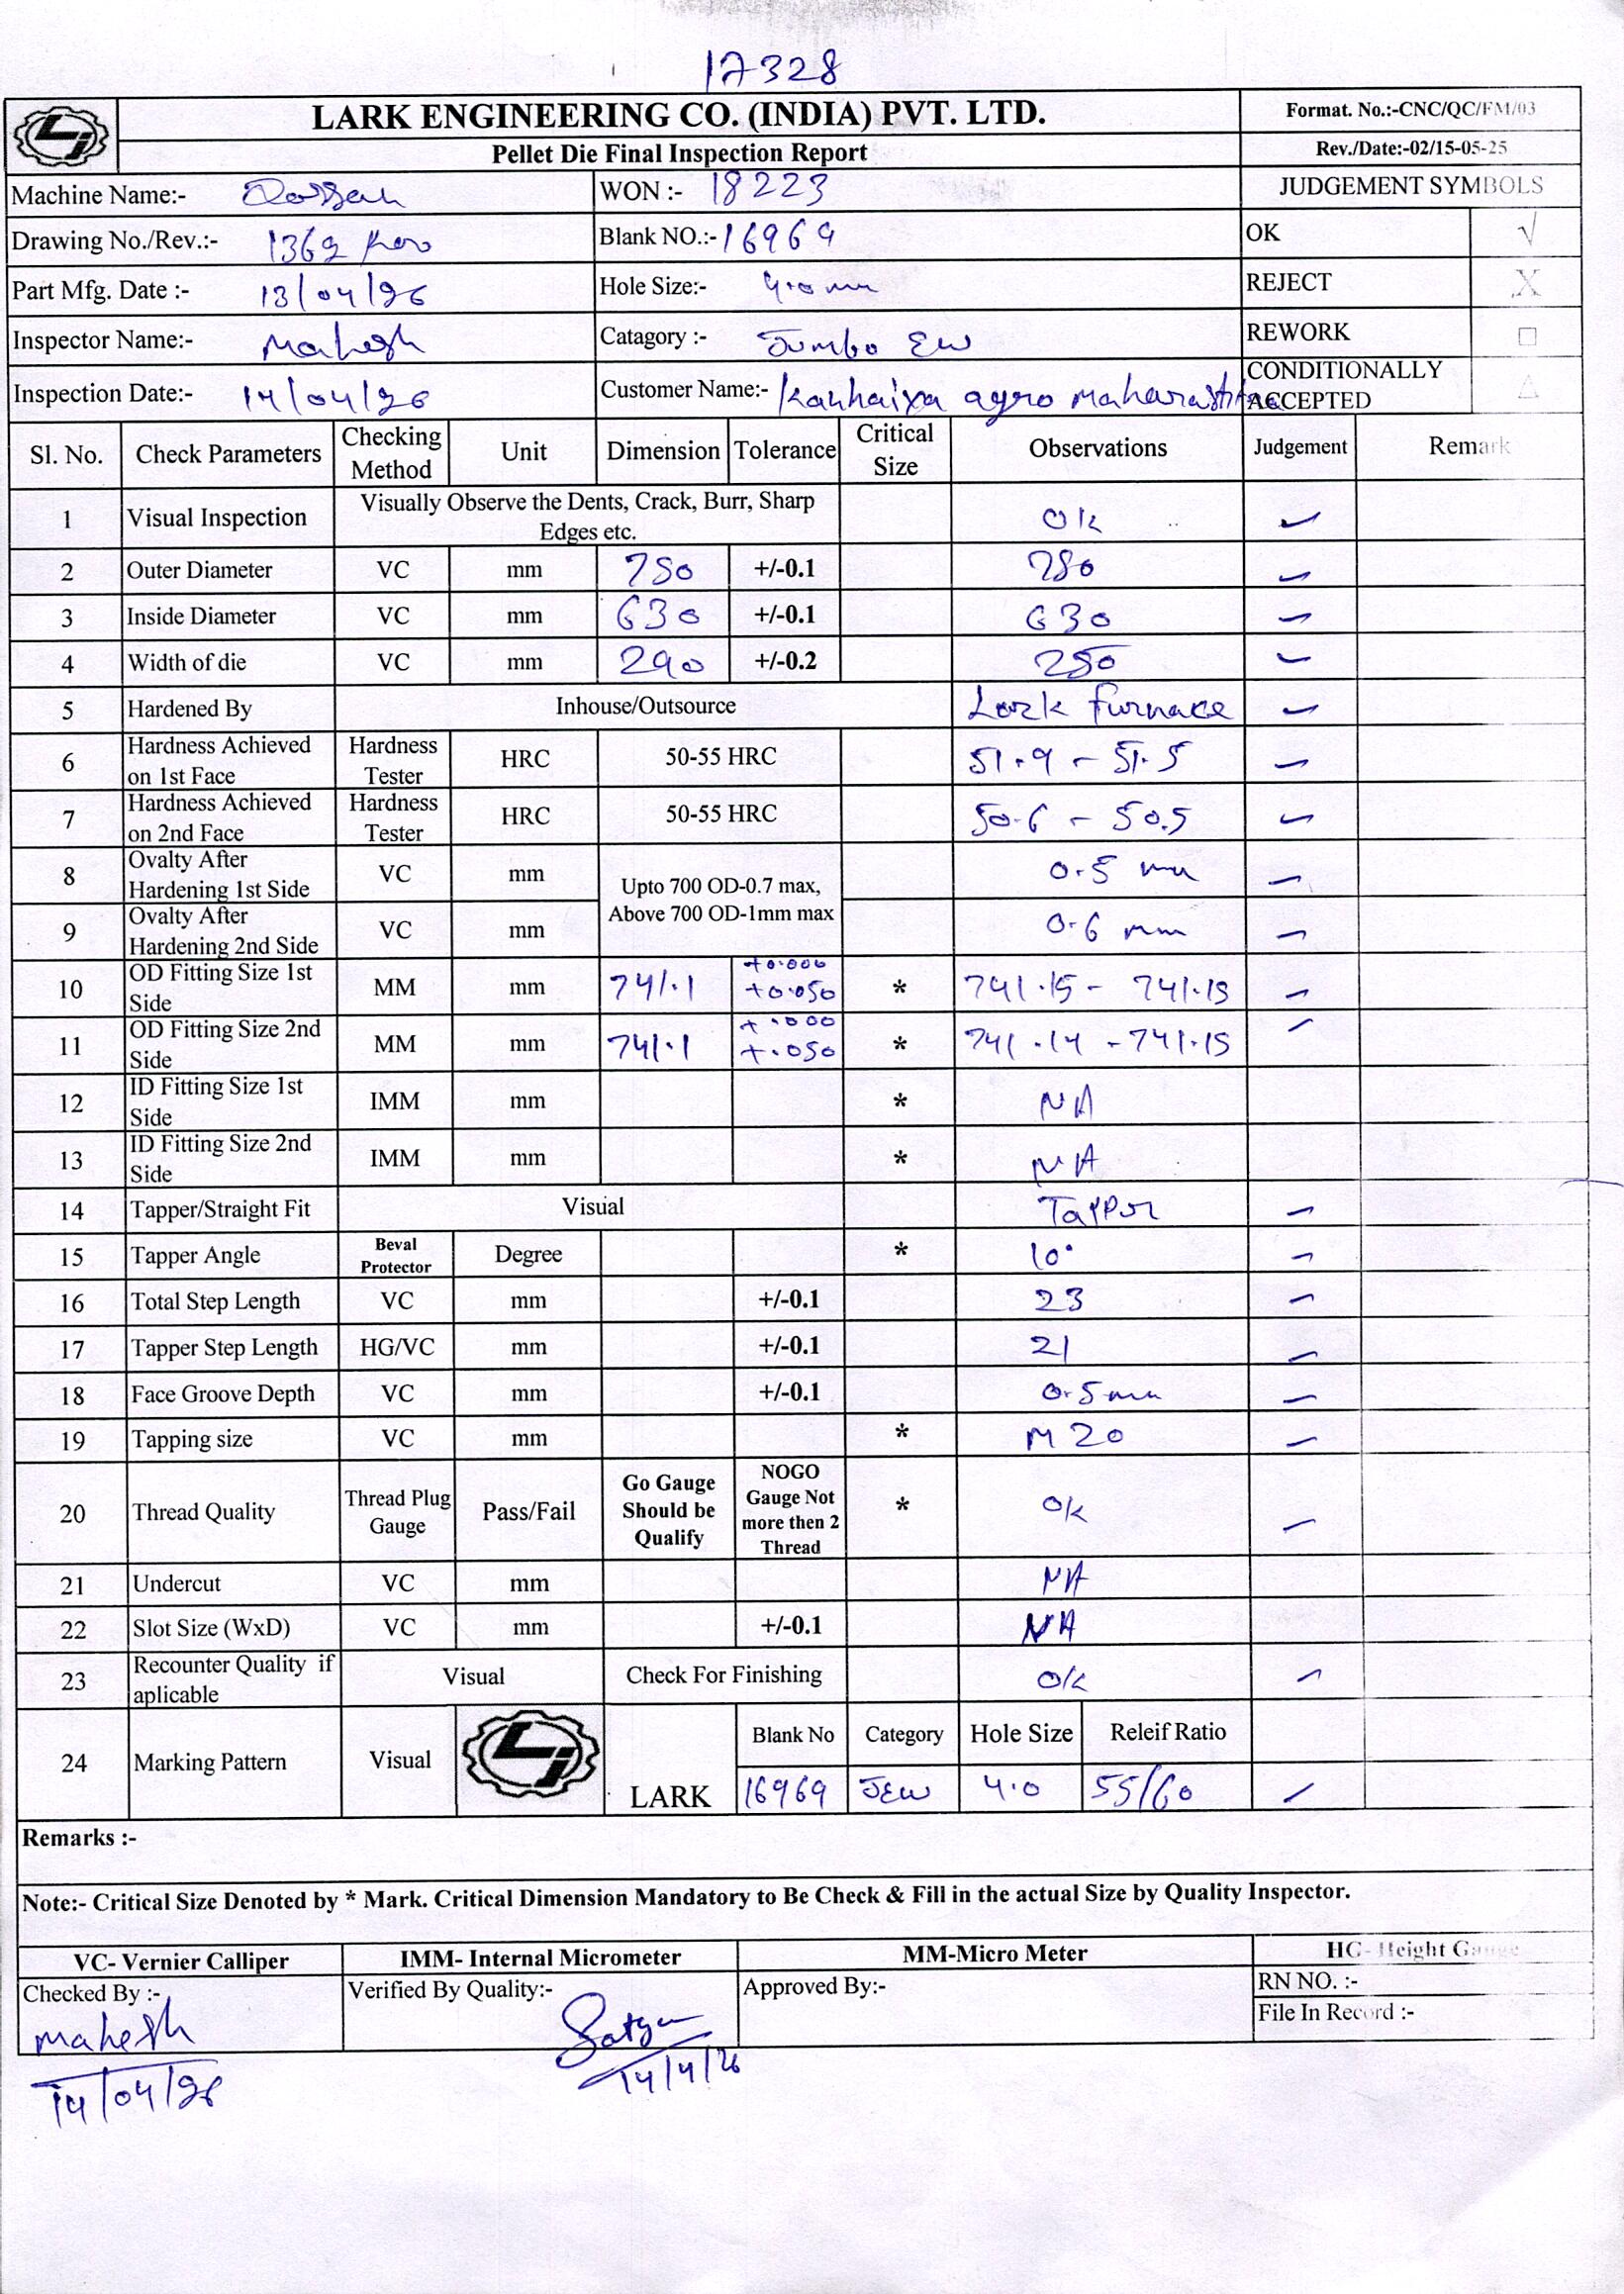 17328
LARK ENGINEERING CO. (INDIA) PVT. LTD.
Format. No.:-CNC/QC/FM/03
Pellet Die Final Inspection Report
Rev./Date:-02/15-05-25
Machine Name:-
WON :- 18223
JUDGEMENT SYMBOLS
Drawing No./Rev.:- 1369
Blank NO.:- 16969
OK √
Part Mfg. Date :- 13/04/26
Hole Size:- 4.0 mm
REJECT X
Inspector Name:- Mahesh
Catagory :- Jumbo EW
REWORK □
Inspection Date:- 14/04/26
Customer Name:- Kanhaiya agro Maharashtra
CONDITIONALLY ACCEPTED △
Sl. No. Check Parameters Checking Method Unit Dimension Tolerance Critical Size Observations Judgement Remark
1 Visual Inspection Visually Observe the Dents, Crack, Burr, Sharp Edges etc. OK ✓
2 Outer Diameter VC mm 780 +/-0.1 780 ✓
3 Inside Diameter VC mm 630 +/-0.1 630 ✓
4 Width of die VC mm 290 +/-0.2 ✓
5 Hardened By Inhouse/Outsource Lark furnace ✓
6 Hardness Achieved on 1st Face Hardness Tester HRC 50-55 HRC 51.9 - 51.5 ✓
7 Hardness Achieved on 2nd Face Hardness Tester HRC 50-55 HRC 50.6 - 50.5 ✓
8 Ovalty After Hardening 1st Side VC mm Upto 700 OD-0.7 max, Above 700 OD-1mm max 0.5 mm ✓
9 Ovalty After Hardening 2nd Side VC mm 0.6 mm ✓
10 OD Fitting Size 1st Side MM mm 741.1 +0.000 +0.050 * 741.15 - 741.15 ✓
11 OD Fitting Size 2nd Side MM mm 741.1 +.000 +.050 * 741.14 - 741.15 ✓
12 ID Fitting Size 1st Side IMM mm * NA
13 ID Fitting Size 2nd Side IMM mm * NA
14 Tapper/Straight Fit Visual Tapper ✓
15 Tapper Angle Beval Protector Degree * 10° ✓
16 Total Step Length VC mm +/-0.1 23 ✓
17 Tapper Step Length HG/VC mm +/-0.1 21 ✓
18 Face Groove Depth VC mm +/-0.1 0.5mm ✓
19 Tapping size VC mm * M 20 ✓
20 Thread Quality Thread Plug Gauge Pass/Fail Go Gauge Should be Qualify NOGO Gauge Not more then 2 Thread * Ok ✓
21 Undercut VC mm NA
22 Slot Size (WxD) VC mm +/-0.1 NA
23 Recounter Quality if aplicable Visual Check For Finishing Ok ✓
24 Marking Pattern Visual LARK Blank No Category Hole Size Releif Ratio
16969 JEW 4.0 55/60 ✓
Remarks :-
Note:- Critical Size Denoted by * Mark. Critical Dimension Mandatory to Be Check & Fill in the actual Size by Quality Inspector.
VC- Vernier Calliper IMM- Internal Micrometer MM-Micro Meter HG- Height Gauge
Checked By :- Verified By Quality:- Approved By:- RN NO. :-
File In Record :-
mahesh
14/04/26
Satya
14/4/26